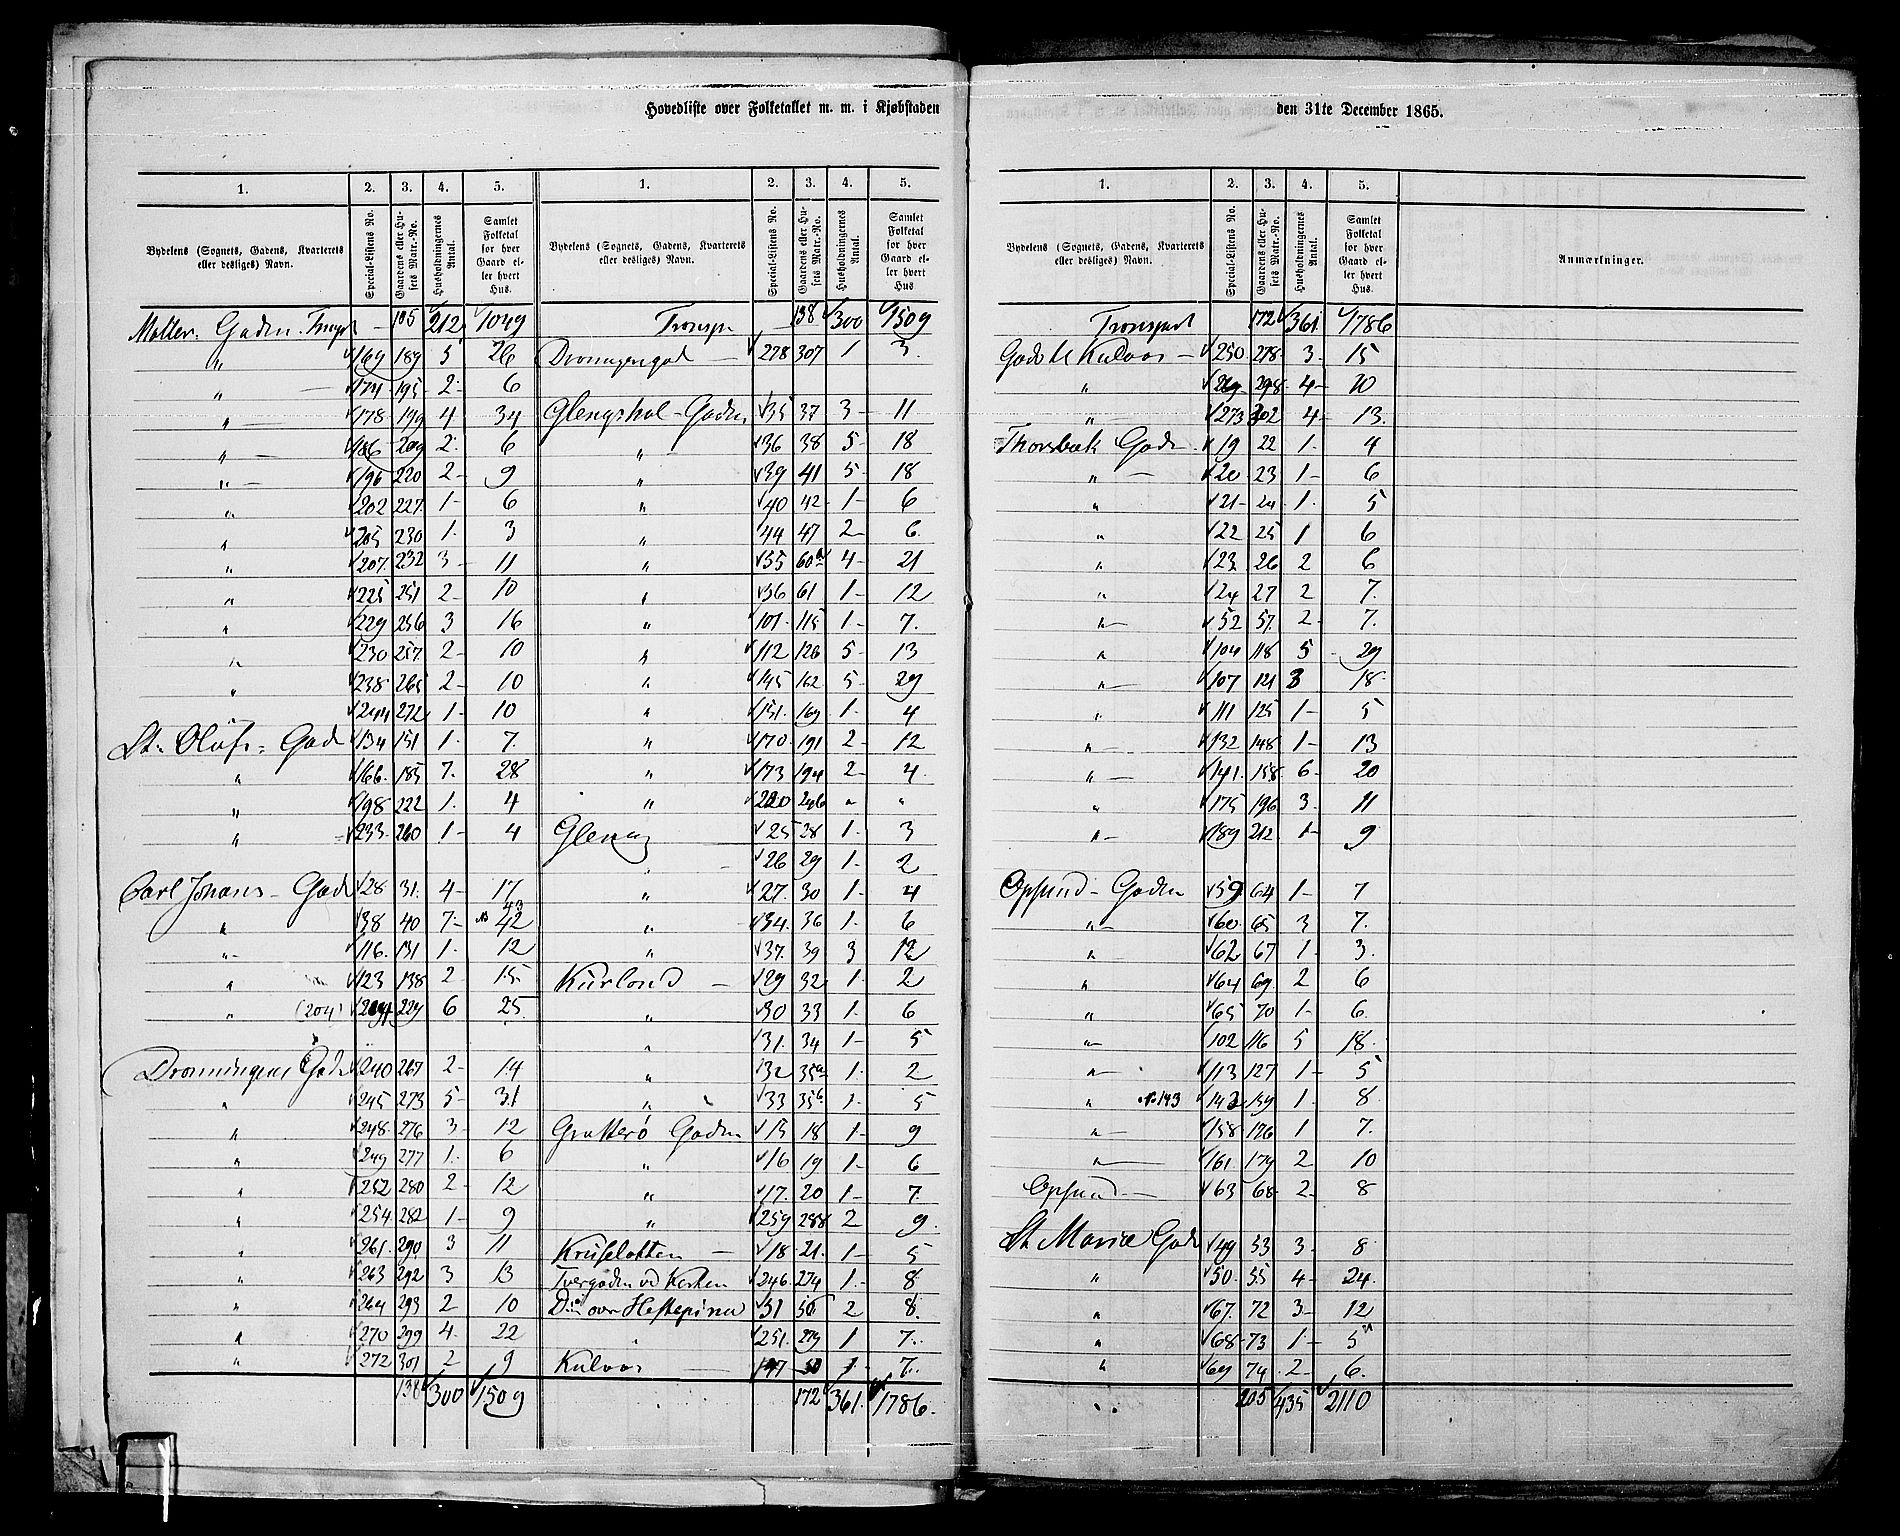 Hovedliste over Folketallet m. m. i Kjøbstaden
den 31te December 1865.
1. 2. 3. 4. 5. 1. 2. 3. 4. 5.
Bydelens (Sognets, Gadens, Kvarterets eller desliges) Navn. Special-Listens No. Gaardens eller Husets Matr.-No. Husholdningernes Antal. Samlet Folketal for hver Gaard eller hvert Hus. Bydelens (Sognets, Gadens, Kvarterets eller desliges) Navn. Special-Listens No. Gaardens eller Husets Matr.-No. Husholdningernes Antal. Samlet Folketal for hver Gaard eller hvert Hus
Gaden 105 212 1049
" 169 189 5 26
" 174 195 2 6
" 178 199 4 34
" 186 209 2 6
" 196 220 2 9
" 202 227 1 6
" 205 230 1 3
" 207 232 3 11
" 225 251 2 10
" 229 256 3 16
" 230 257 2 10
" 238 265 2 10
244 272 1 10
St. Olufs Gad 134 151 1 7
" 166 185 7 28
" 198 222 1 4
" 233 260 1 4
Carl Johans Gade 28 31 4 17
" 38 40 7 42 43
" 116 131 1 12
" 123 138 2 15
" (204) 229 6 25
Dronningens Gade 240 267 2 14
" 245 273 5 31
" 248 276 3 12
" 249 277 1 6
" 252 280 2 12
" 254 282 1 9
" 261 290 3 11
" 263 292 3 13
" 264 293 2 10
" 270 299 4 22
" 272 301 2 9
138 300 1509
Transp 138 300 1509
278 307 1 3
Glengshol-Gaden 35 37 3 11
" 36 38 5 18
" 39 41 5 18
" 40 42 1 6
" 44 47 2 6
" 55 60a 4 21
" 56 61 1 12
" 101 115 1 7
" 112 126 5 13
" 145 162 5 29
" 151 169 1 4
" 170 191 2 12
" 173 194 2 4
" 220 246 " "
Gleng 25 28 1 3
26 29 1 2
" 27 30 1 4
" 34 36 1 6
" 37 39 3 12
Kurland 29 32 1 2
" 30 33 1 6
" 31 34 1 5
" 32 35a 1 2
" 33 35b 1 5
Grotterø Gaden 15 18 1 9
" 16 19 1 6
" 17 20 1 7
" 259 288 2 9
Kruseløkken 18 21 1 5
Tvergaden vd Kirken 246 274 1 8
Do over Hestepina 51 2 8
" 251 279 1 7
Kulvas 1 7
172 361 1786
1. 2. 3. 4. 5.
Bydelens (Sognets, Gadens, Kvarterets eller desliges) Navn. Special-Listens No. Gaardens eller Husets Matr.-No. Husholdningernes Antal. Samlet Folketal for hver Gaard eller hvert Hus. Anmærkninger.
Transport 172 361 1786
250 278 3 15
" 298 4 20
" 273 302 4 13
Thorsbæk Gade 19 22 1 4
" 20 23 1 6
" 21 24 1 5
" 22 25 1 6
" 23 26 2 6
" 24 27 2 7
" 52 57 2 7
" 104 118 5 29
" 107 121 3 18
" 111 125 1 5
" 132 148 1 13
" 141 158 6 20
" 175 196 3 11
" 189 212 1 9
Opsund-Gaden 59 64 1 7
" 60 65 3 7
" 62 67 1 3
" 64 69 2 6
" 65 70 1 6
" 102 116 5 18
" 113 127 1 5
" No 143 142 159 1 8
" 158 176 1 7
" 161 179 2 10
Opsund 63 68 2 8
St Marie Gade 49 53 3 8
" 50 55 4 24
" 67 72 3 12
" 68 73 1 5
" 69 74 2 6
205 435 2110